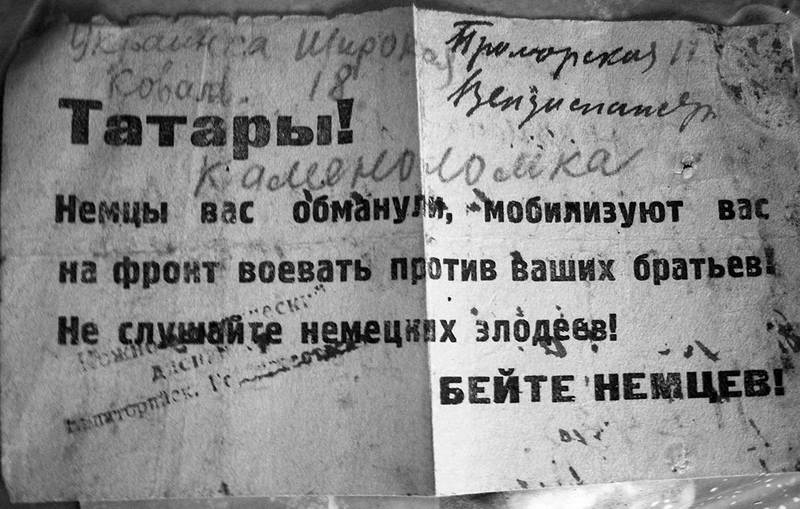 Украинса Широкая
Ковал. 18
Приморская 11
Татары!
Каменоломка
Немцы вас обманули, мобилизуют вас
на фронт воевать против ваших братьев!
Не слушайте немецких злодеев!
БЕЙТЕ НЕМЦЕВ!